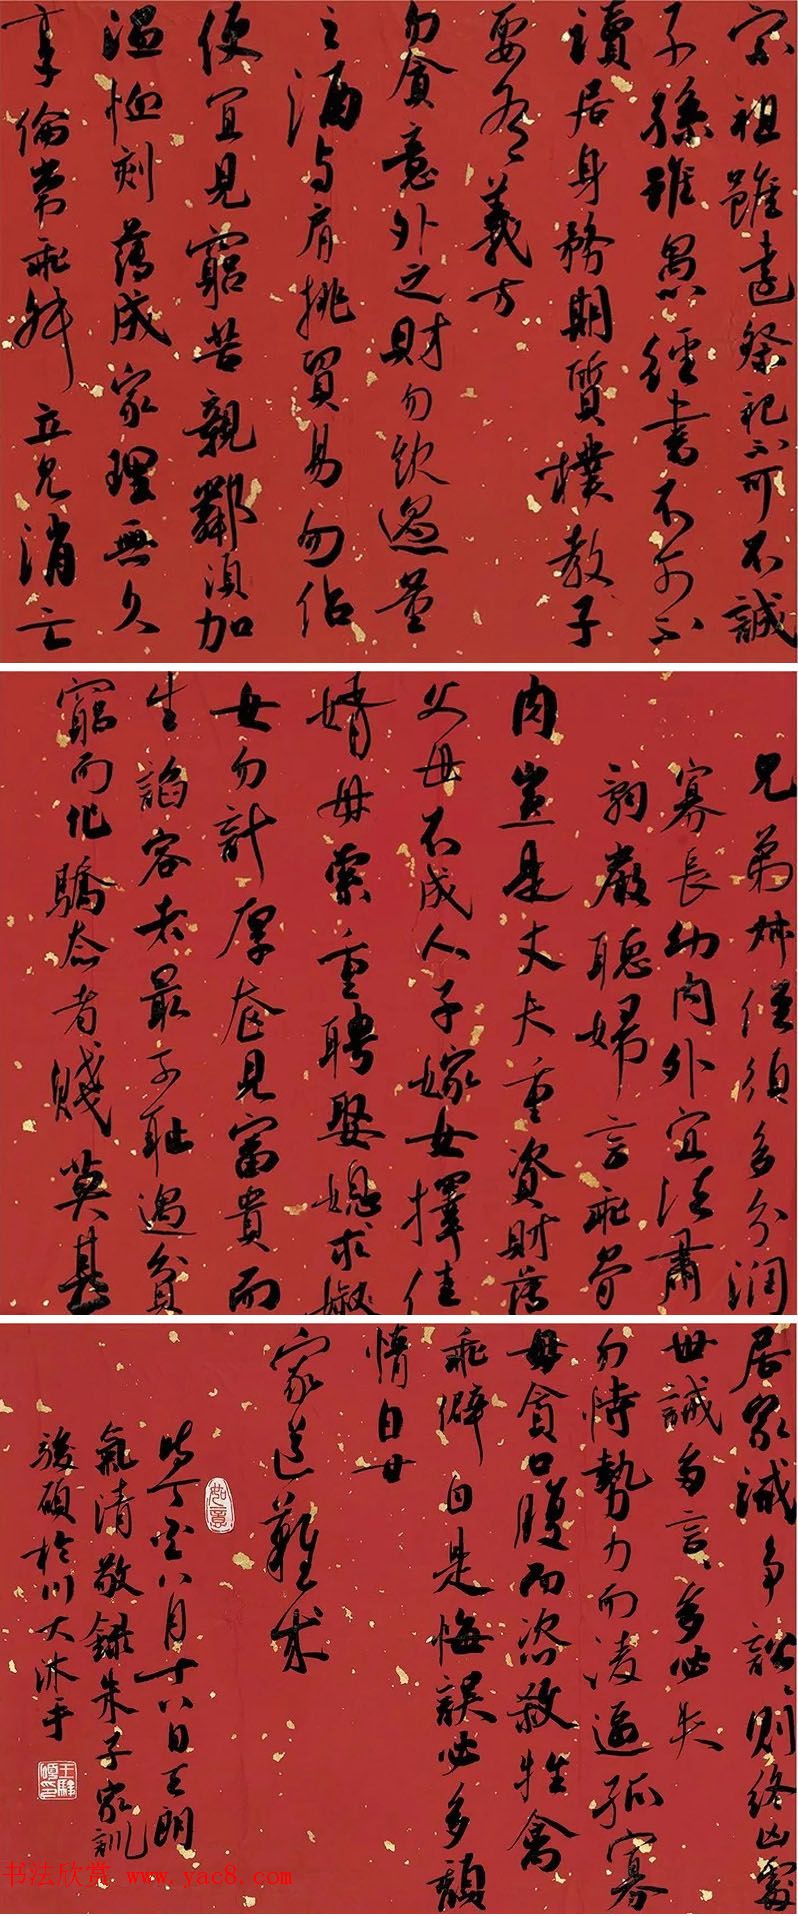 宗祖雖遠祭祀不可不誠
子孫雖愚經書不可不
讀居身務期質樸教子
要有義方
勿貪意外之財勿飲過量
之酒与肩挑貿易勿佔
便宜見窮苦親鄰須加
溫恤刻薄成家理無久
享倫常乖舛立見消亡
兄弟叔侄須多分潤
寡長幼內外宜法肅
詞嚴聽婦言乖骨
肉豈是丈夫重資財薄
父母不成人子嫁女擇佳
婿毋索重聘娶媳求淑
女勿計厚奩見富貴而
生諂容者最可恥遇貧
窮而作驕態者賤莫甚
居家誡爭訟訟則終凶處
世誡多言言多必失
勿恃勢力而凌逼孤寡
毋貪口腹而恣殺牲禽
乖僻自是悔誤必多頹
惰自甘
家道難成
如意
時丁亥八月十八日天朗
氣清敬錄朱子家訓
駿碩於川大沐手
书法欣赏 www.yac8.com